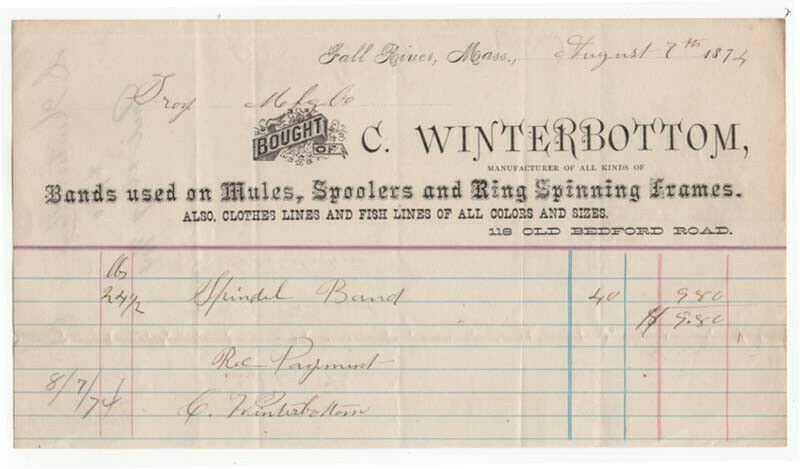 Fall River, Mass., August 7th 1874
Troy Mfg Co
BOUGHT OF C. WINTERBOTTOM,
MANUFACTURER OF ALL KINDS OF
Bands used on Mules, Spoolers and Ring Spinning Frames.
ALSO, CLOTHES LINES AND FISH LINES OF ALL COLORS AND SIZES.
118 OLD BEDFORD ROAD.
lbs
24 1/2 Spindel Band 40 9.80
9.80
Rec Payment
8/7/74 C. Winterbottom